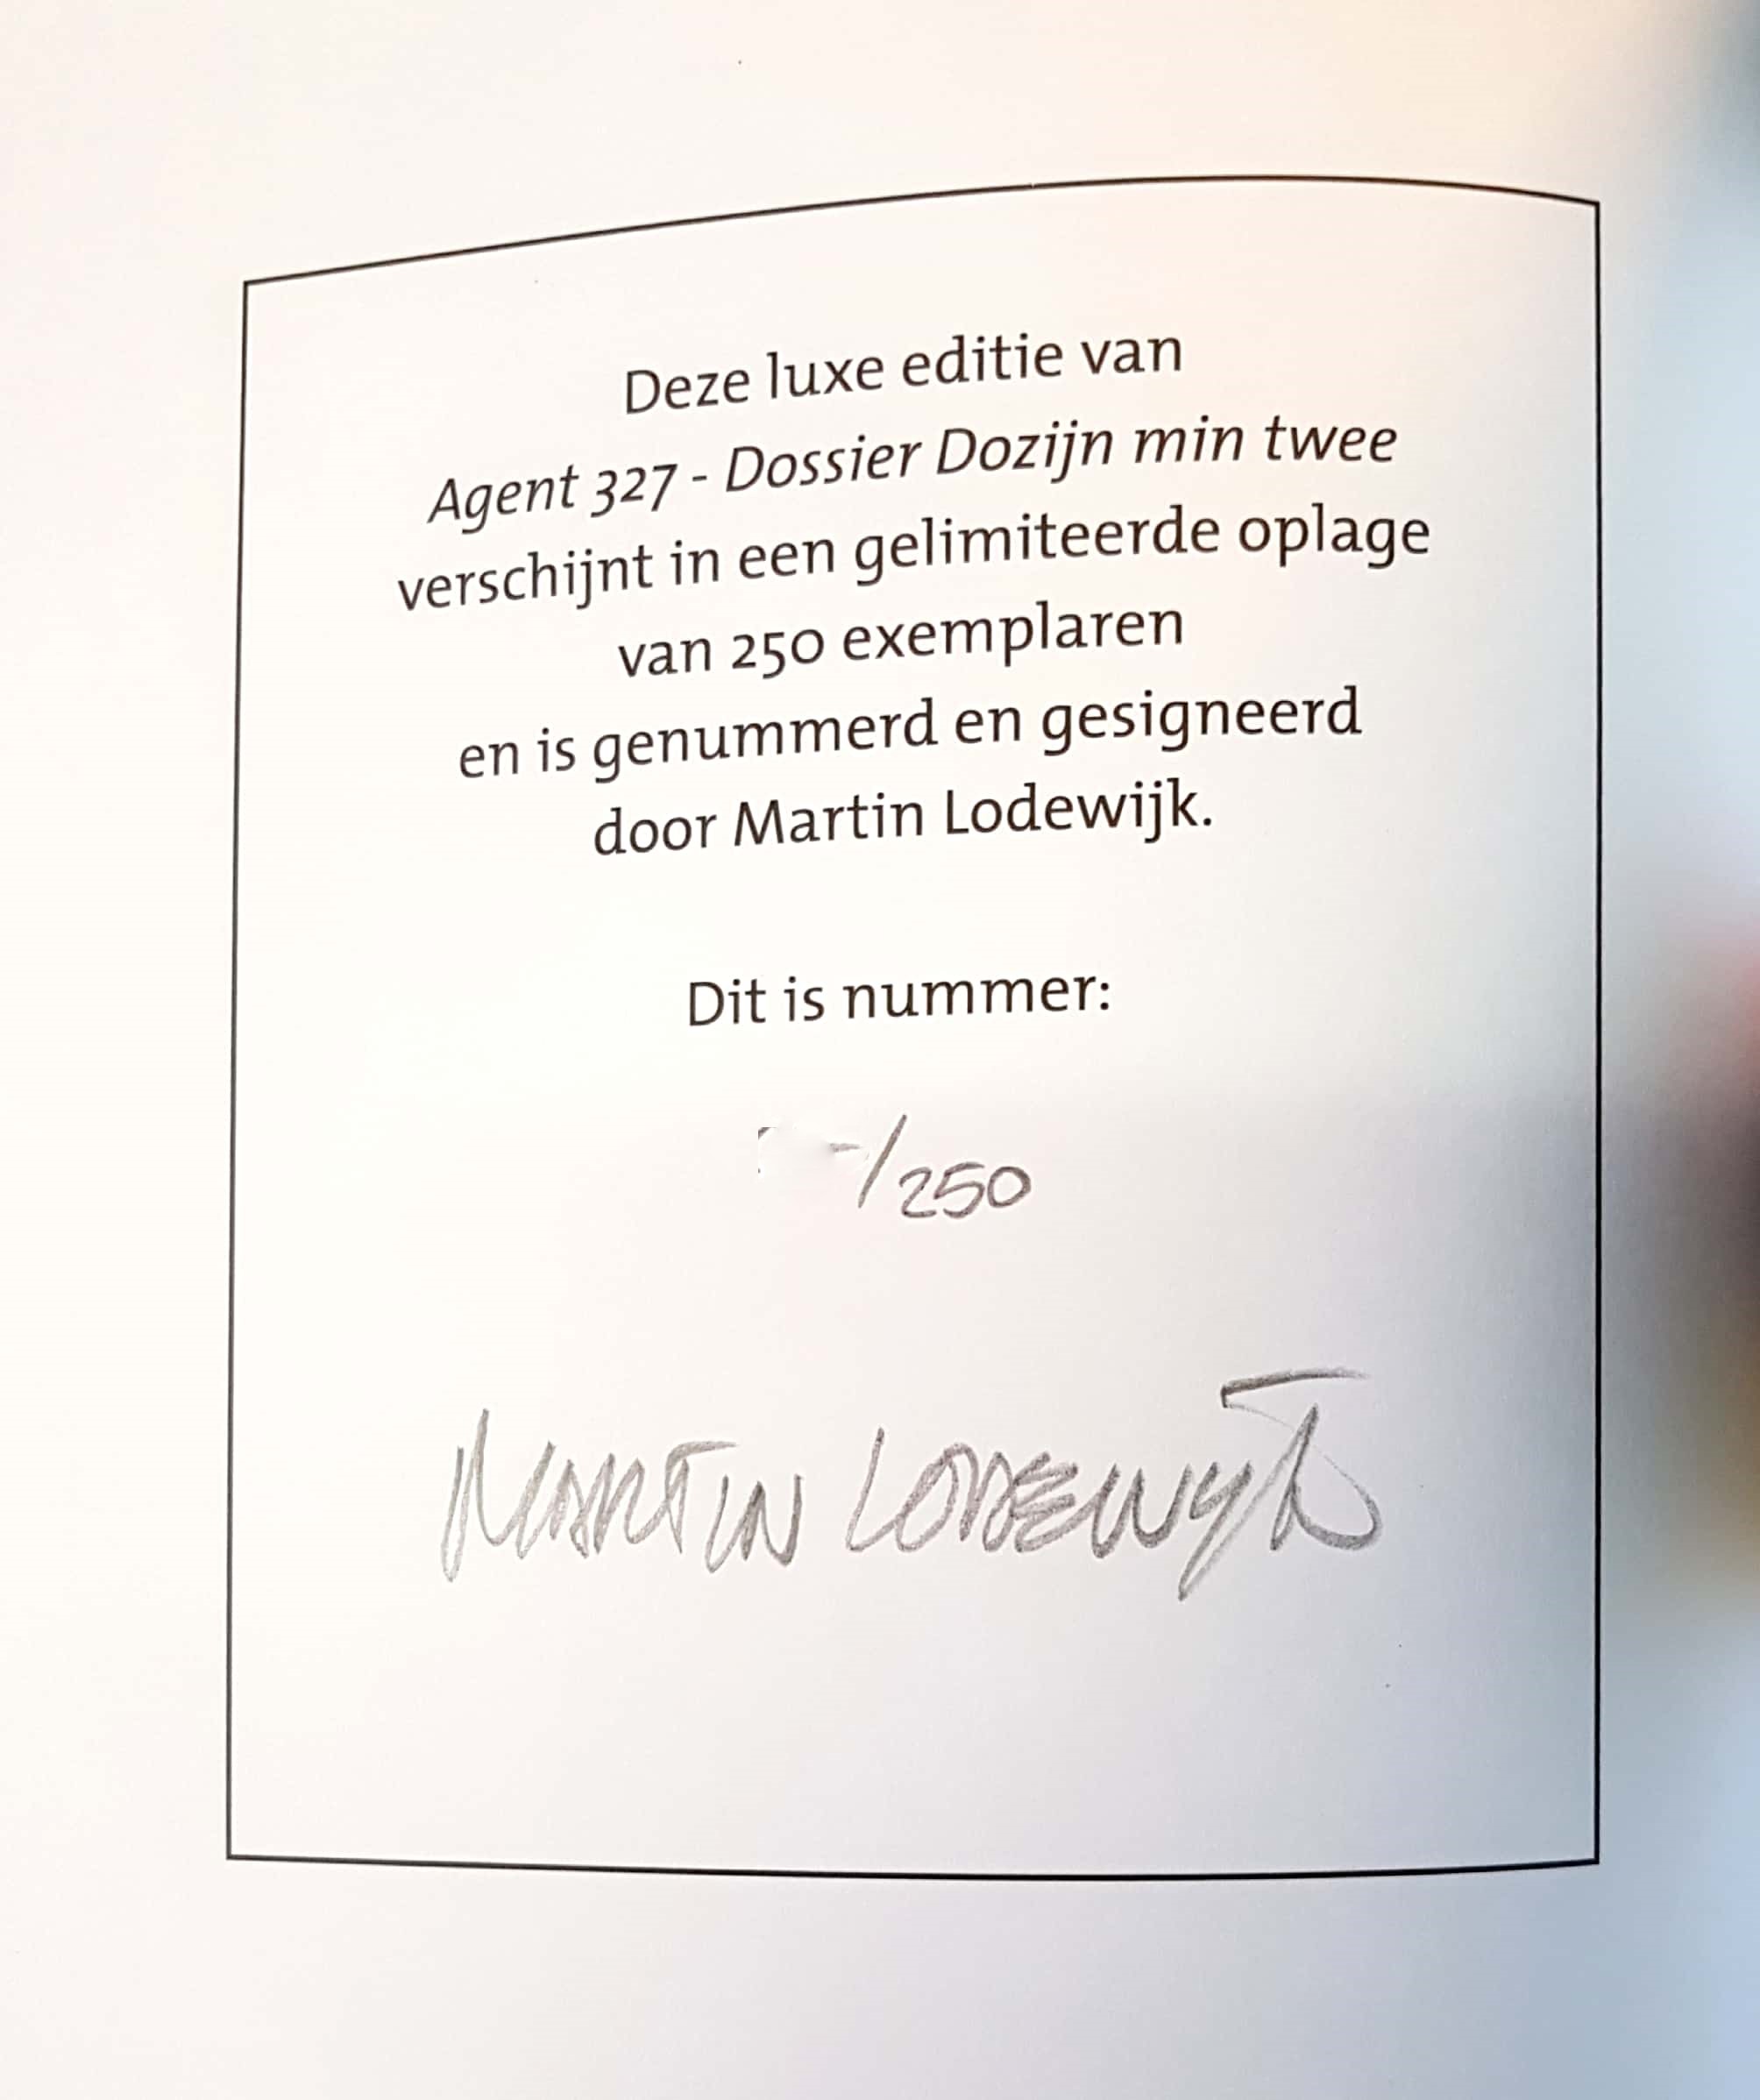 Deze luxe editie van
Agent 327 - Dossier Dozijn min twee
verschijnt in een gelimiteerde oplage
van 250 exemplaren
en is genummerd en gesigneerd
door Martin Lodewijk.
Dit is nummer:
/250
MARTIN LODEWYK